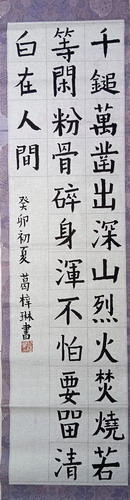 千鎚萬凿出深山烈火焚燒若
等閑粉骨碎身渾不怕要留清
白在人間
癸卯初夏 葛梓琳書